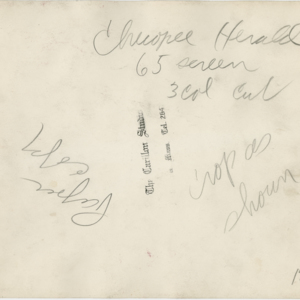 Chicopee Herald
65 screen
3 col cut
Crop as
shown
Paper
copy
The Carillon Studio
Tel. 284